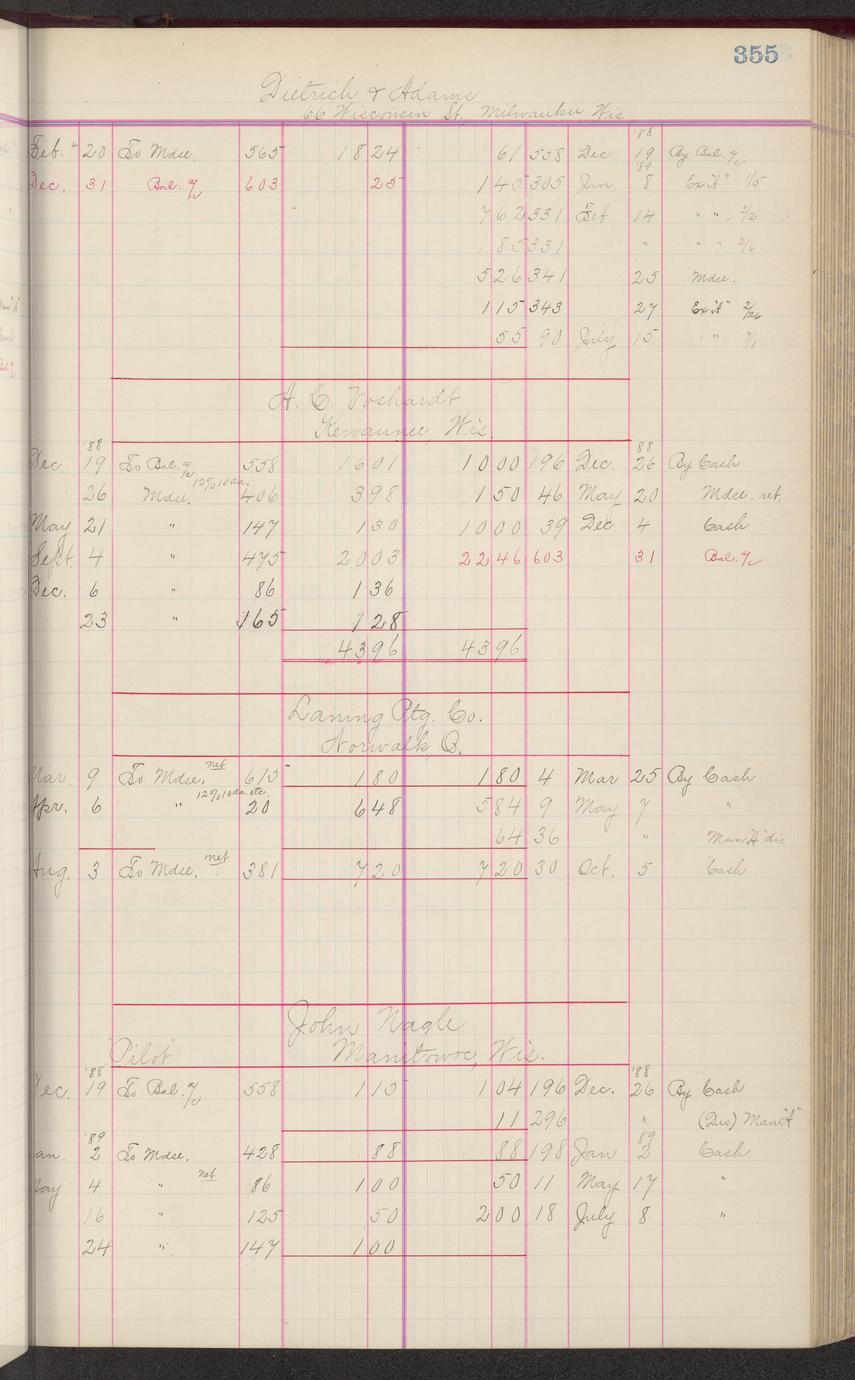 355
Dietrich & Adams
66 Wisconsin St, Milwaukee, Wis.
'88
Feb. " 20 To Mdse. 565 18 24 61 558 Dec. 19 By Bal. a/c
'89
Dec. 31 Bal. a/c 603 25 1 45 305 Jan. 8 Ex "A" 1/5
7 62 331 Feb 14 " " 2/2
1 85 331 " " " 2/6
5 26 341 25 Mdse.
1 15 343 27 Ex "A" 2/26
55 90 July 15 " " 7/1
A. C. Voshardt
Kewaunee, Wis.
'88 88
Dec. 19 To Bal. a/c 558 16 01 10 00 196 Dec. 26 By Cash
12% 10 da.
26 Mdse. 406 3 98 1 50 46 May 20 Mdse. ret.
May 21 " 147 1 30 10 00 39 Dec 4 Cash
Sept. 4 " 475 20 03 22 46 603 31 Bal. a/c
Dec. 6 " 86 1 36
23 " 165 1 28
43 96 43 96
Laning Ptg. Co.
Norwalk O.
Mar. 9 To Mdse. net 615 1 80 1 80 4 Mar 25 By Cash
12% 10 da. etc.
Apr. 6 " 20 6 48 5 84 9 May 7 "
64 36 " Man "A" dis
Aug. 3 To Mdse. net 381 7 20 7 20 30 Oct. 5 Cash
John Nagle
"Pilot" Manitowoc, Wis.
'88 '88
Dec. 19 To Bal. a/c 558 1 15 1 04 196 Dec. 26 By Cash
11 296 " (Dis) Man "A"
'89 89
Jan. 2 To Mdse. 428 88 88 198 Jan 2 Cash
May 4 " net 86 1 00 50 11 May 17 "
16 " 125 50 2 00 18 July 8 "
24 " 147 1 00